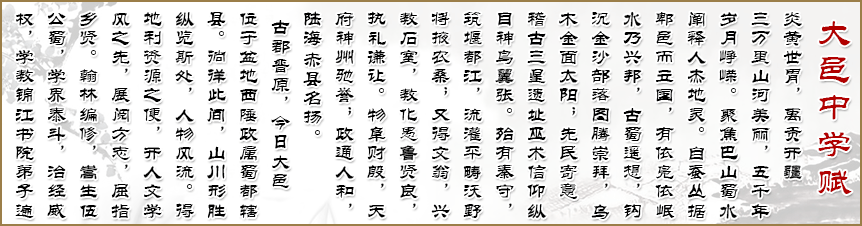 大邑中学赋
炎黄世胄，禹贡开疆
三万里山河美丽，五千年
岁月峥嵘。聚焦巴山蜀水
阐释人杰地灵。自蚕丛据
郫邑而立国，有依凫依岷
水乃兴邦，古蜀遥想，钩
沉金沙部落图腾崇拜，乌
木金面太阳；先民寄意
稽古三星遗址巫术信仰纵
目神鸟翼张。殆有秦守，
筑堰都江，流灌平畴沃野
将掖农桑；又得文翁，兴
教石室，教化愚鲁贤良，
执礼谦让。物阜财殷，天
府神州驰誉；政通人和，
陆海赤县名扬。
古郡晋原，今日大邑
位于盆地西陲政属蜀都辖
县。徜徉此间，山川形胜
纵览斯处，人物风流。得
地利资源之便，开人文学
风之先，展阅方志，屈指
乡贤。翰林编修，嵩生伍
公蜀，学界泰斗，治经威
权，学教锦江书院弟子遍